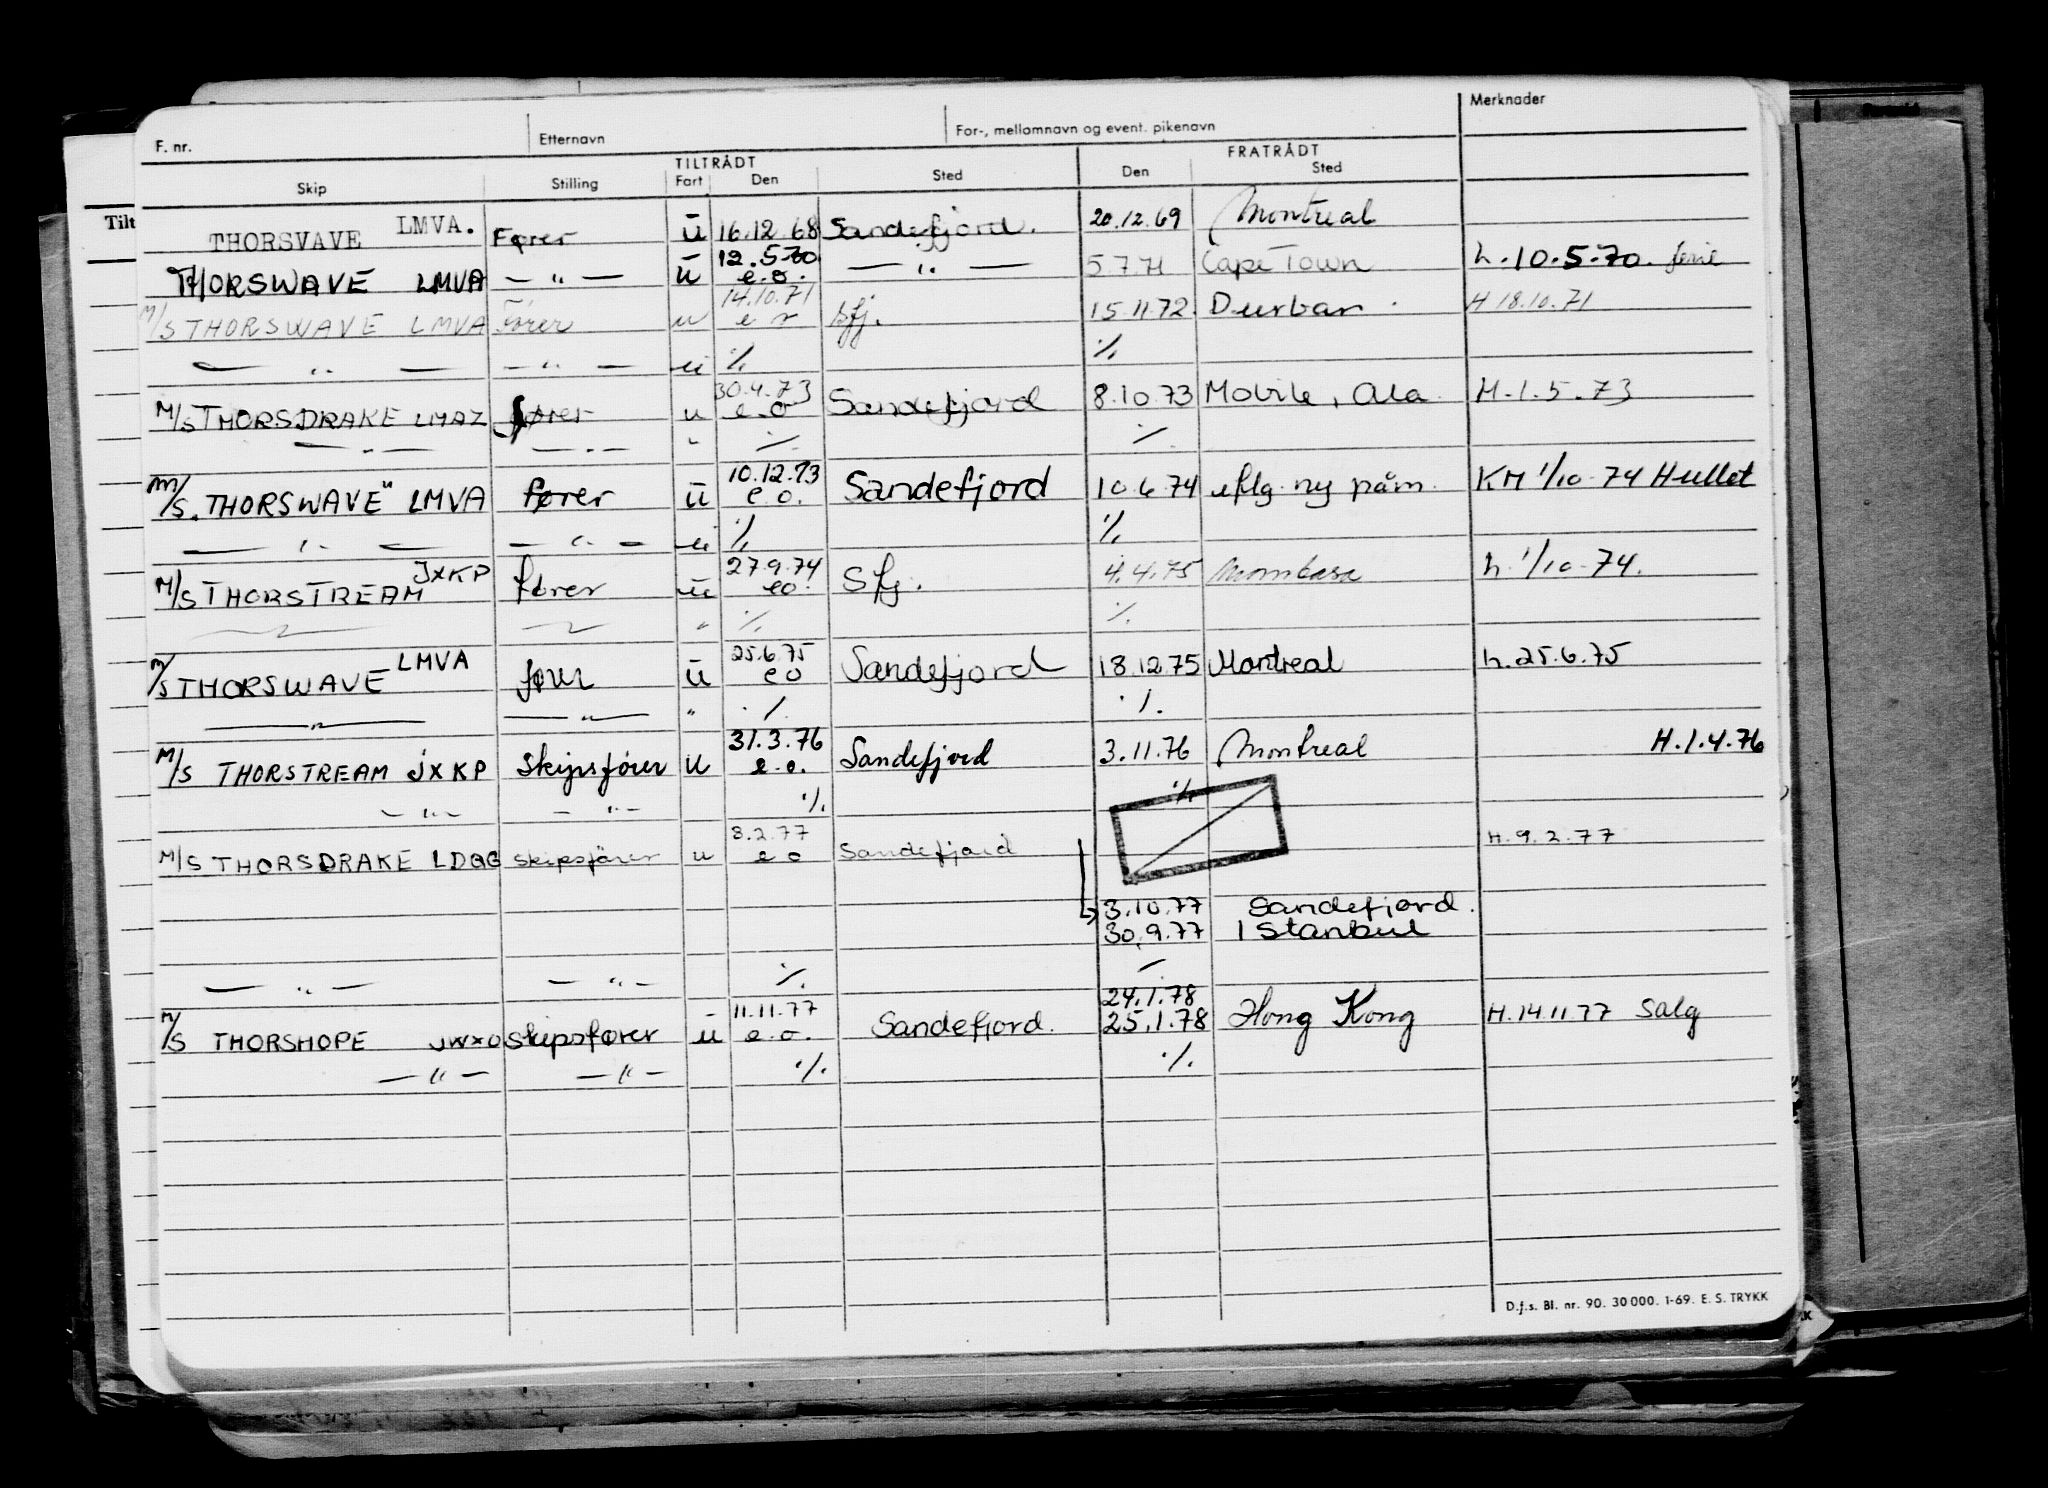 Merknader
F. nr. Etternavn For-, mellomnavn og event. pikenavn
TILTRÅDT FRATRÅDT
Skip Stilling Fart Den Sted Den Sted
Tilt
THORSVAVE LMVA. Fører ū 16.12.68 Sandefjord. 20.12.69 Montreal
12.5-70
THORSWAVE LMVA — " — ū e.o. — " — 5.7.71 Cape Town h. 10.5-70. ferie
14.10.71
M/S THORSWAVE LMVA Fører u e o Sfj. 15.11.72 Durban. H 18.10.71
— " — — " — u ·/. ·/.
30.4.73
M/S THORSDRAKE LMAZ fører u e.o Sandefjord 8.10.73 Mobile, Ala. H.1.5.73
— " — — " — " ·/. ·/.
10.12.73
M/S "THORSWAVE" LMVA fører ū e.o. Sandefjord 10.6.74 iflg. ny påm. KM 1/10-74 Hullet
— " — — " — u ·/. ·/.
27.9.74
M/S THORSTREAM JXKP fører ū eo. Sfj. 4.4.75 Mombasa h. 1/10-74.
" ·/. ·/.
25.6.75
M/S THORSWAVE LMVA fører ū eo Sandefjord 18.12.75 Montreal h. 25.6.75
— " — — " — " ·/. ·/.
31.3.76
M/S THORSTREAM JXKP Skipsfører u e.o. Sandefjord 3.11.76 Montreal H.1.4.76
— " — — " — ·/. ·/.
8.2.77
M/S THORSDRAKE LDQG skipsfører u e o Sandefjord H.9.2.77
3.10.77 Sandefjord.
30.9.77 Istanbul
— " — — " — ·/. ·/.
11.11.77 24.1.78
M/S THORSHOPE JWXO Skipsfører ū e.o. Sandefjord. 25.1.78 Hong Kong H.14.11.77 Salg
— " — — " — ·/. ·/.
D.f.s. Bl. nr. 90. 30 000. 1-69. E. S. TRYKK